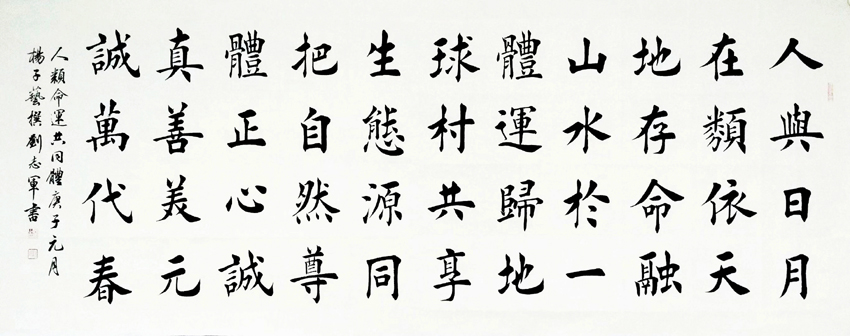 人與日月
在類依天
地存命融
山水於一
體運歸地
球村共享
生態源同
把自然尊
體正心誠
真善美元
誠萬代春
人類命運共同體庚子元月
楊子藝撰劉志軍書